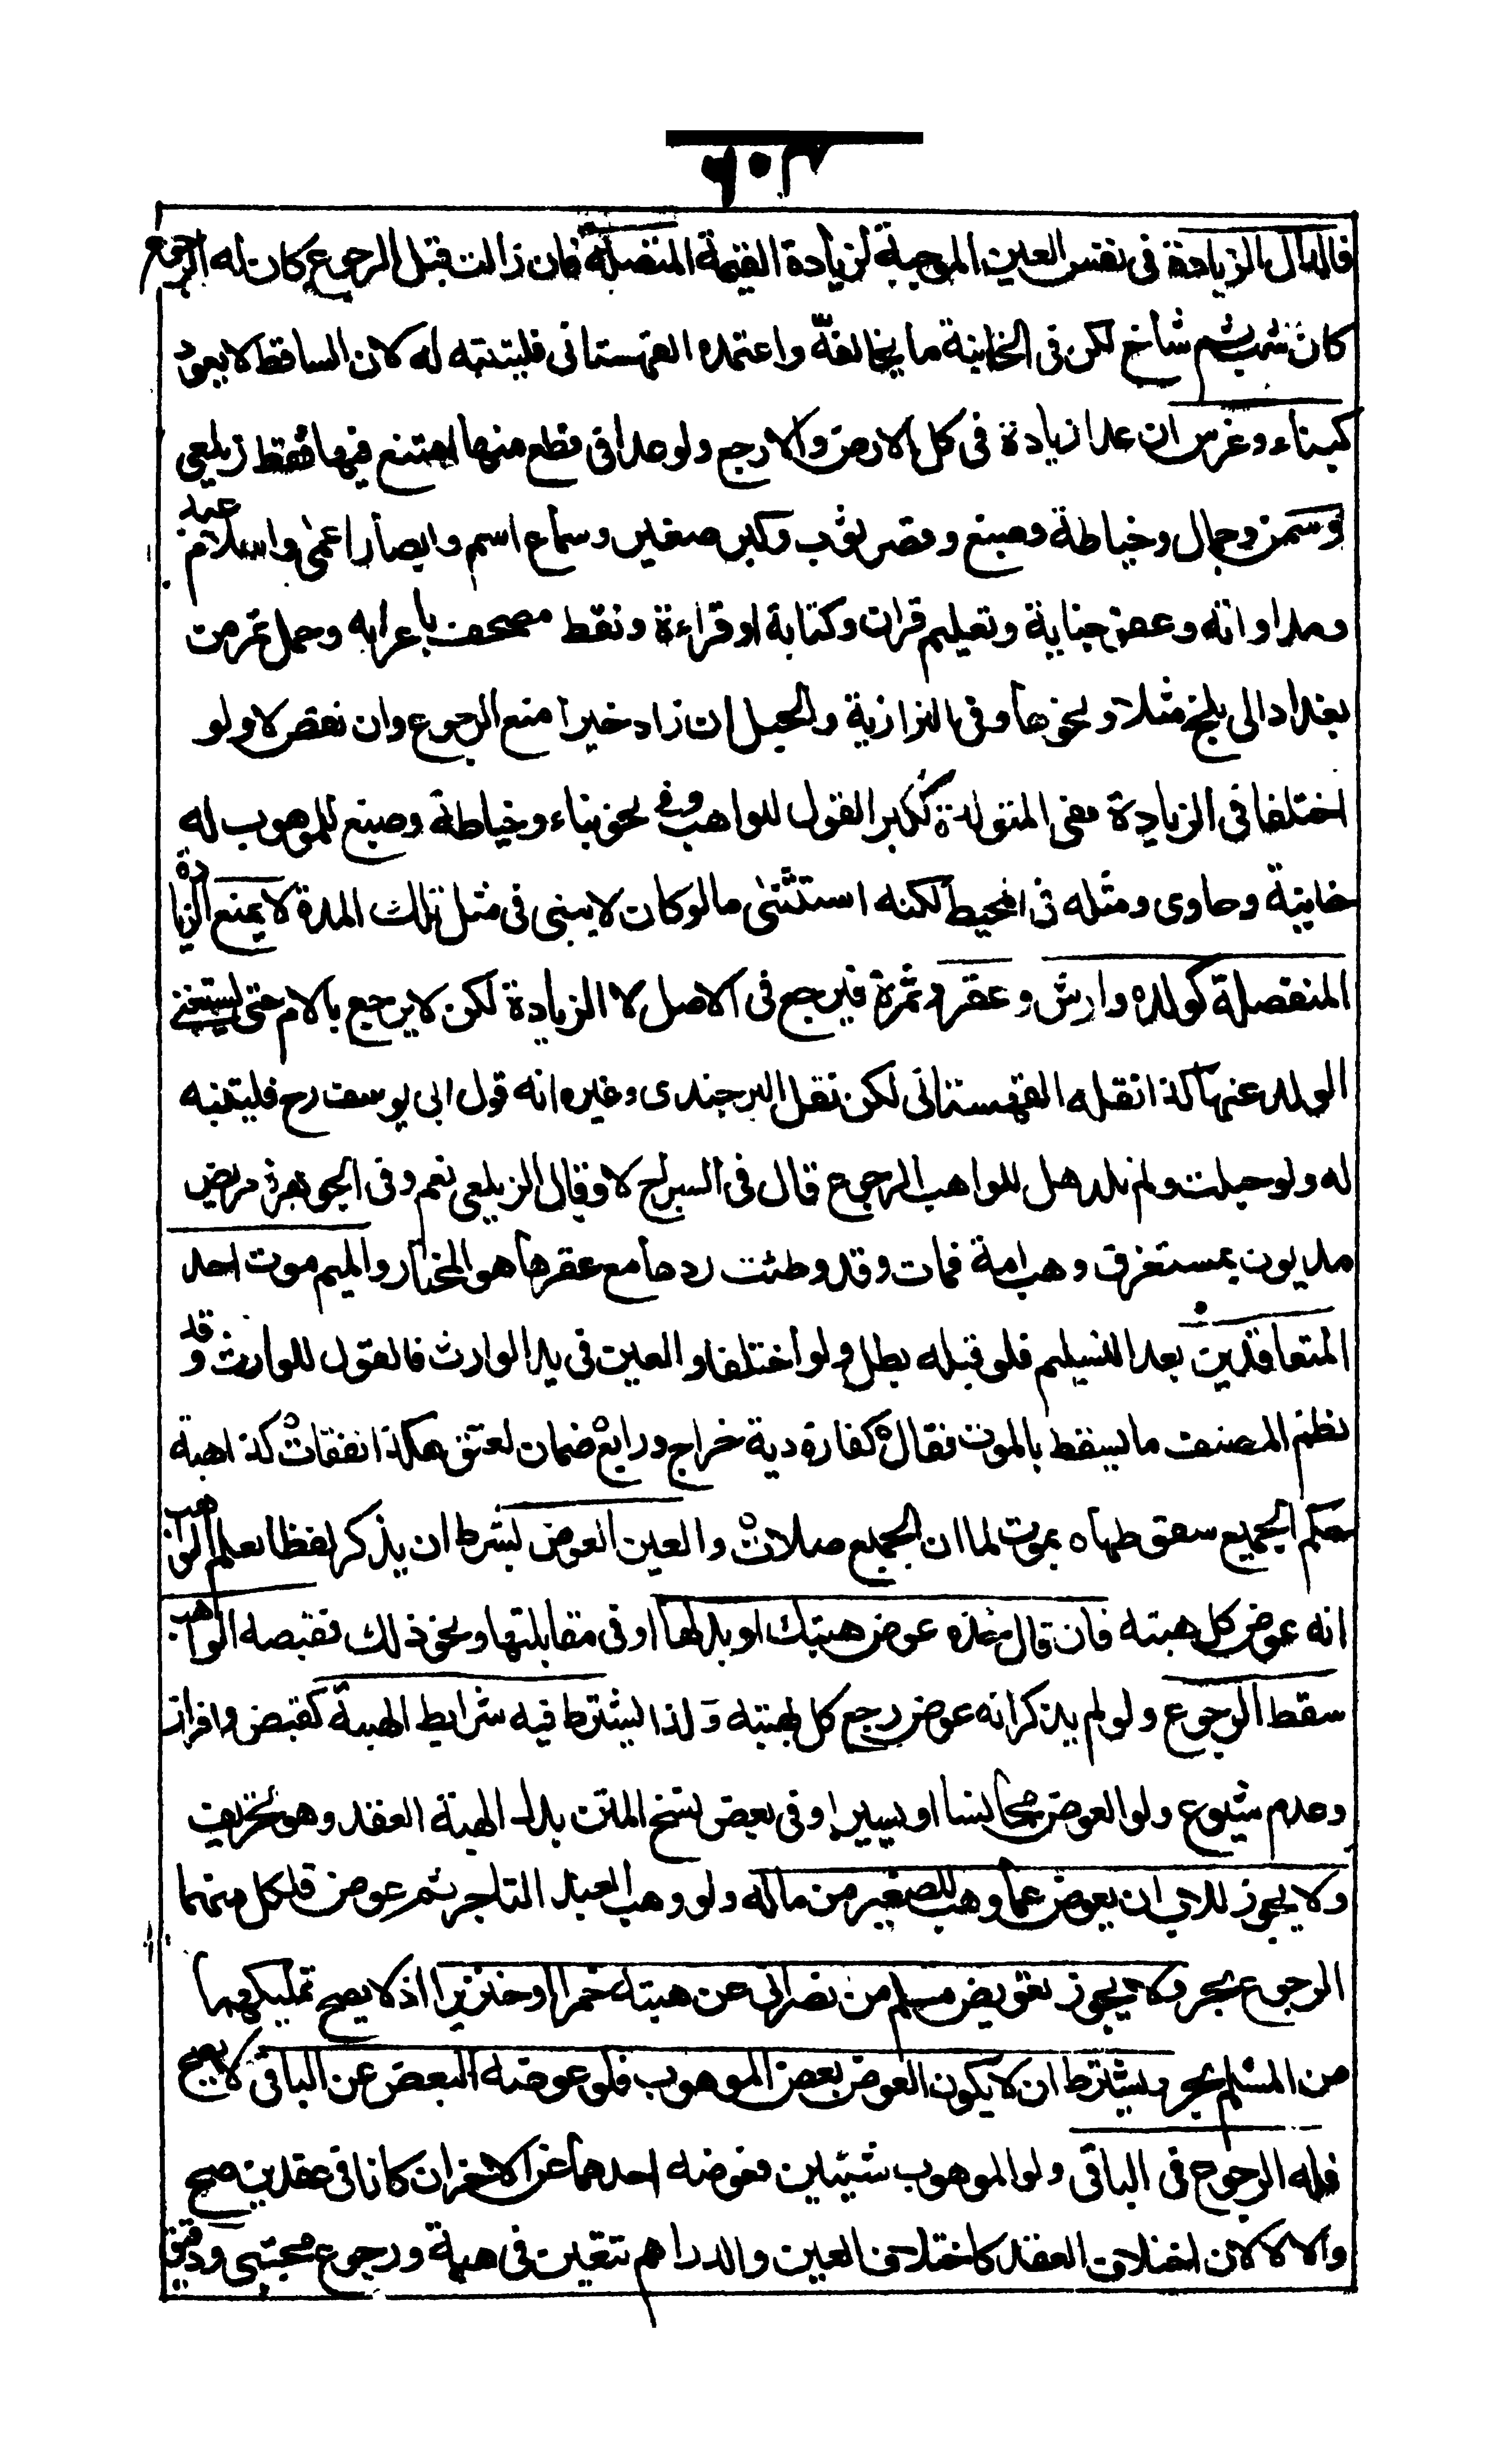 ٦٠٣
فالدال الزيادة فى نفس العين الموجبة لزيادة القيمة المتصلة فان زالت قبل الرجوع كان له الرجوع
كان شب ثم شاخ لكن فى الخانية ما يخالفه واعتمده القهستانى فليتنبه له لان الساقط لا يعود
كبناء وغرس ان عدا زيادة فى كل الارض والا رجع ولو عدا فى قطع منها امتنع فيها فقط زيلعى
وسمن وجمال وخياطة وصبغ وقصر ثوب وكبر صغير وسماع اسم وابصار اعمى واسلام عبد
ومداواته وعفو جناية وتعليم قران وكتابة او قراءة ونقط مصحف باعرابه وحمل تمر من
بغداد الى بلخ مثلا ونحوها وفى البزازية والحبل ان زاد خيرا منع الرجوع وان نقص لا ولو
اختلفا فى الزيادة ففى المتولدة ككبر القول للواهب وفى نحو بناء وخياطة وصبغ للموهوب له
خانية وحاوى ومثله فى المحيط لكنه استثنى ما لو كان لا يبنى فى مثل تلك المدة لا يمنع الزيادة
المنفصلة كولده وارش وعقر وثمرة فيرجع فى الاصل لا الزيادة لكن لا يرجع بالام حتى يستغنى
الولد عنها كذا نقله القهستانى لكن نقل البرجندى وغيره انه قول ابى يوسف رح فليتنبه
له ولو حبلت ولم تلد هل للواهب الرجوع قال فى السراج لا وقال الزيلعى نعم وفى الجوهرة مريض
مديون بمستغرق وهب امة فمات وقد وطئت ردها مع عقرها هو المختار والميم موت احد
المتعاقدين بعد التسليم فلو قبله بطل ولو اختلفا والعين فى يد الوارث فالقول للوارث وقد
نظم المصنف ما يسقط بالموت فقال ه كفاره دية خراج ورابع ه ضمان لعتق هكذا نفقات ه كذا هبة
حكم الجميع سقوطها ه بموت لما ان الجميع صلات ه والعين العوض بشرط ان يذكر لفظا يعلم الواهب
انه عوض كل هبته فان قال خذه عوض هبتك او بدلها او فى مقابلتها ونحو ذلك فقبضه الواهب
سقط الرجوع ولو لم يذكر انه عوض رجع كل بهبته ولذا يشترط فيه شرايط الهبة كقبض وافراز
وعدم شيوع ولو العوض مجانسا او يسيرا وفى بعض نسخ المتن بدل الهبة العقد وهو تحريف
ولا يجوز للاب ان يعوض عما وهب للصغير من ماله ولو وهب العبد التاجر ثم عوض فلكل منهما
الرجوع بحر ولا يجوز تعويض مسلم من نصرانى عن هبته خمرا او خنزيرا اذ لا يصح تمليكهما
من المسلم بحر ويشترط ان لا يكون العوض بعض الموهوب فلو عوضه البعض عن الباقى لا يصح
فله الرجوع فى الباقى ولو الموهوب شيئين فعوضه احدهما عن الاخر ان كانا فى عقدين صح
والا لا لان اختلاف العقد كاختلاف العين والدراهم تتعين فى هبة ورجوع مجتبى ودقيق